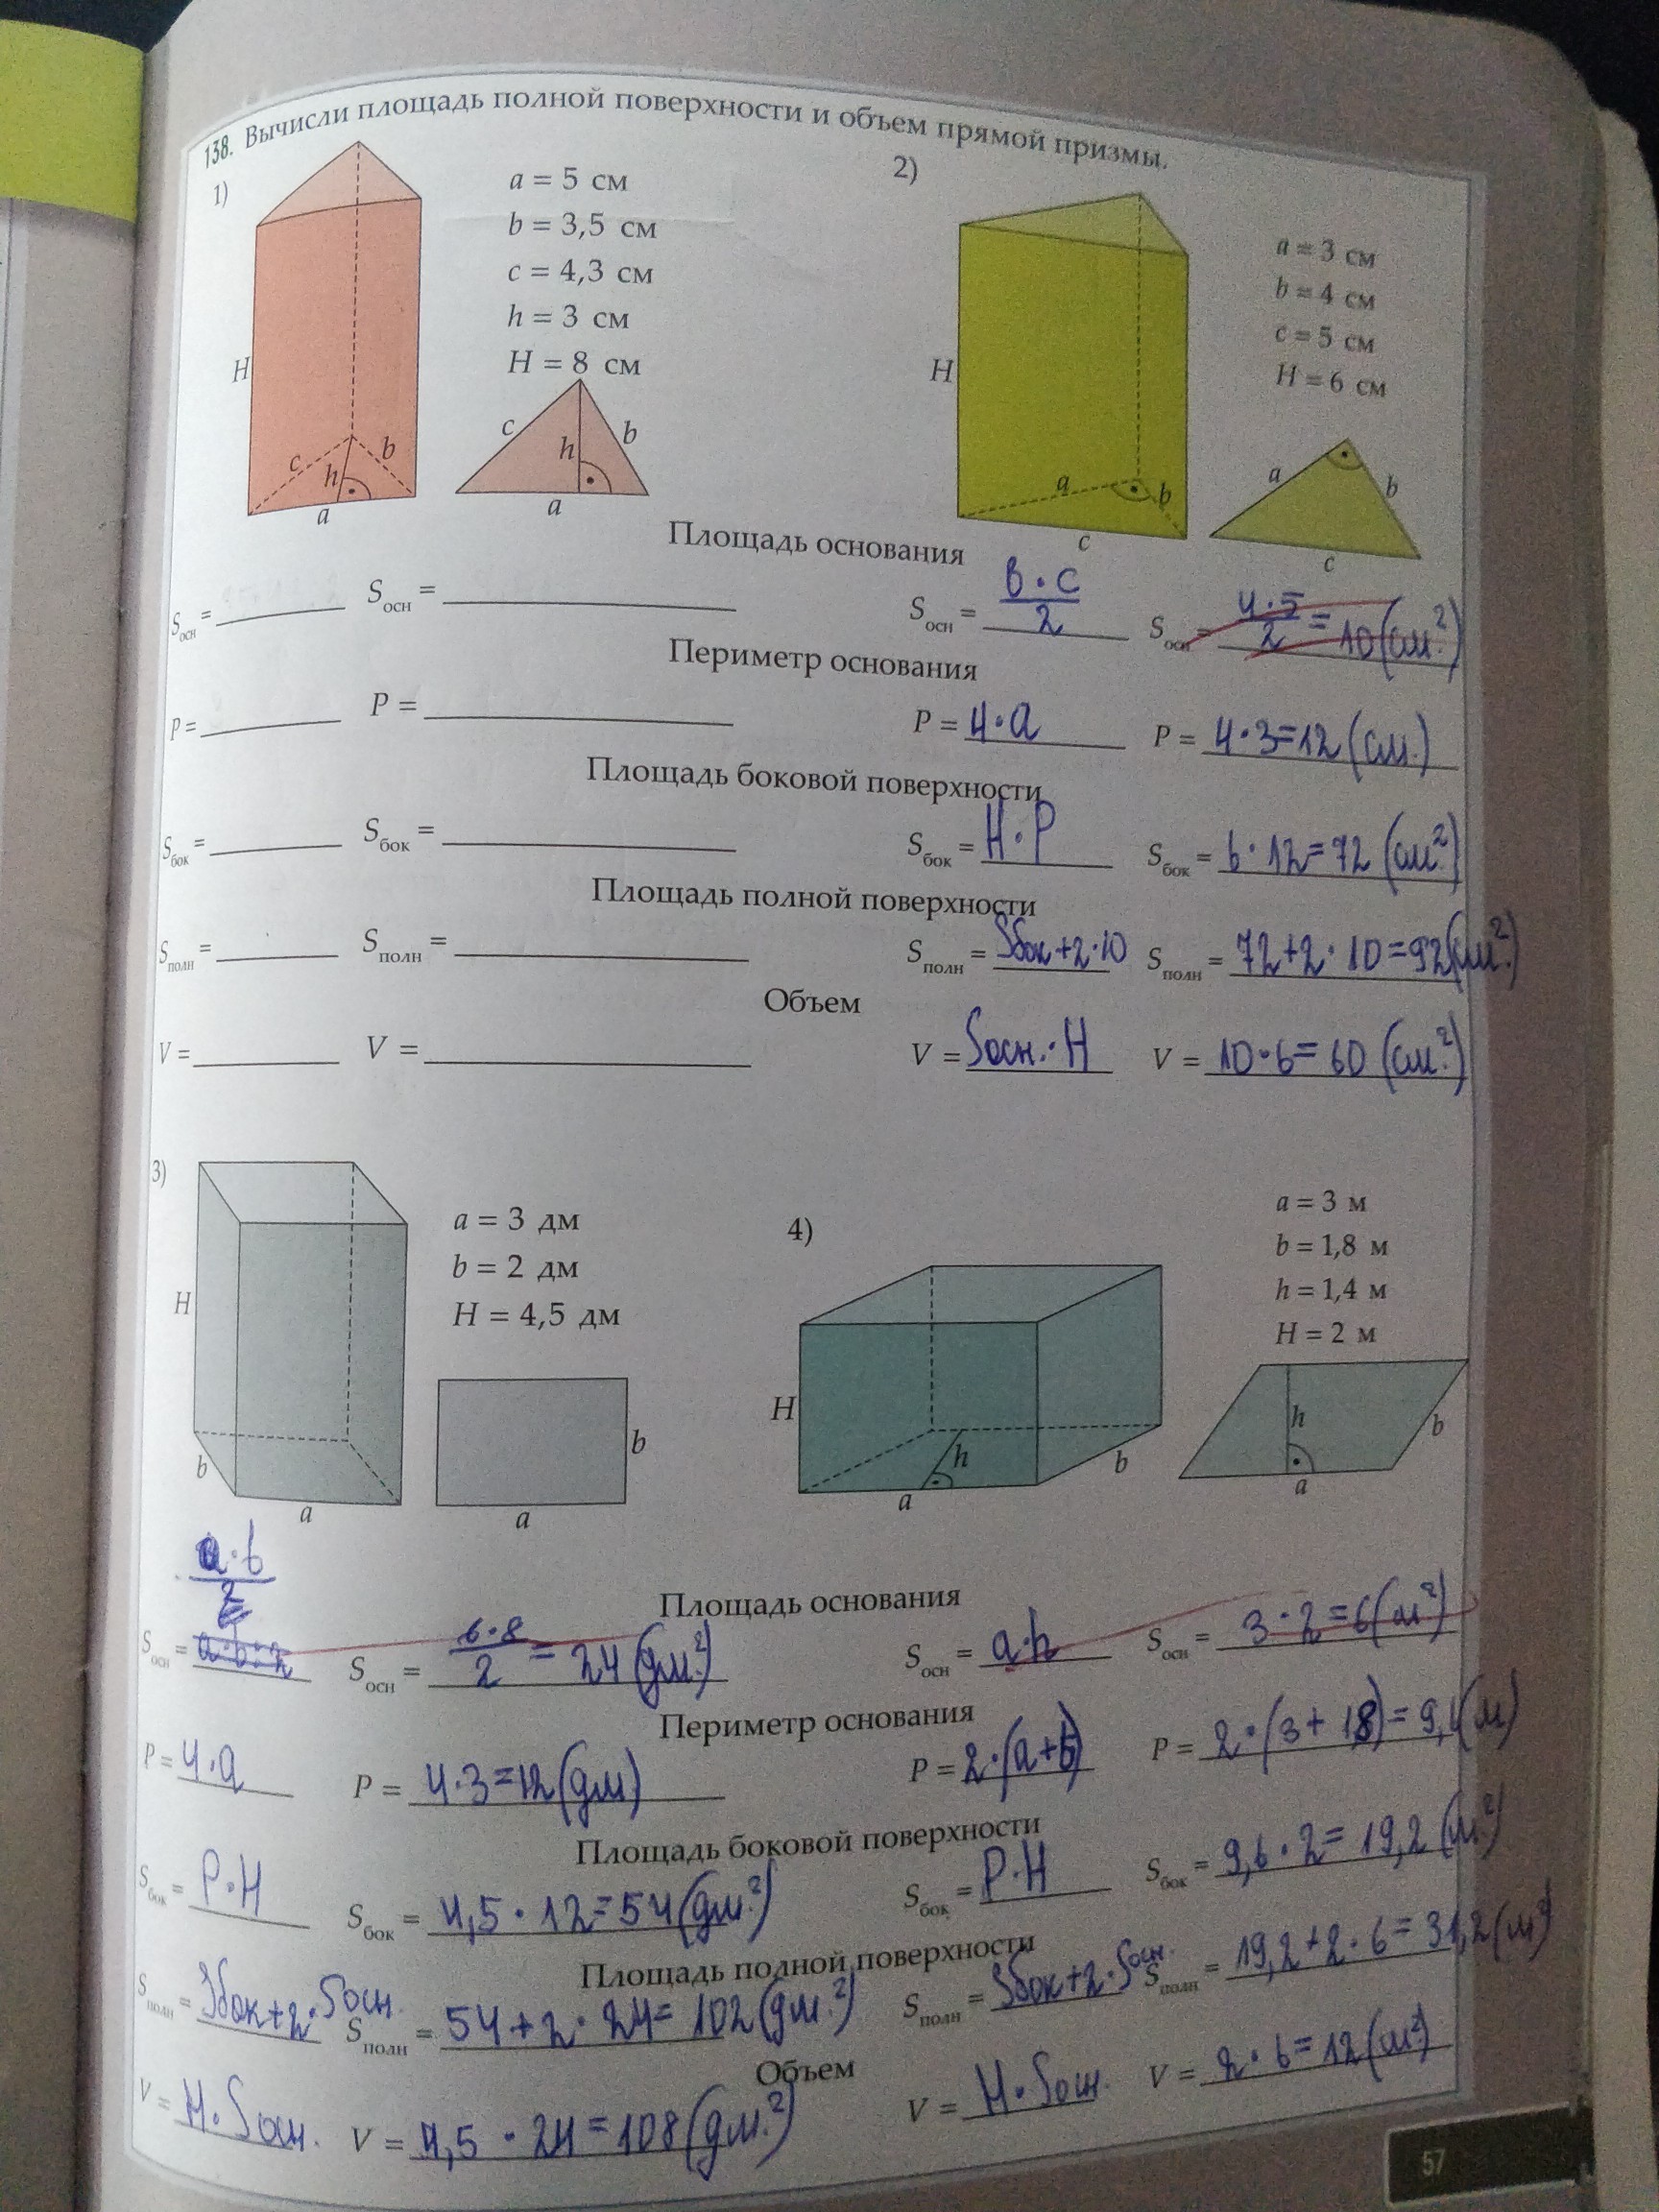 138. Вычисли площадь полной поверхности и объем прямой призмы.
1)
a = 5 см
b = 3,5 см
c = 4,3 см
h = 3 см
H = 8 см
H
c
h
b
a
c
h
b
a
2)
a = 3 см
b = 4 см
c = 5 см
H = 6 см
H
a
b
c
a
b
c
Площадь основания
Sосн = Sосн = Sосн = в·c/2 Sосн = 4·5/2 = 10 (см.²)
Периметр основания
P = P = P = 4·a P = 4·3=12 (см.)
Площадь боковой поверхности
Sбок = Sбок = Sбок = H·P Sбок = 6·12=72 (см.²)
Площадь полной поверхности
Sполн = Sполн = Sполн = Sбок+2·10 Sполн = 72+2·10=92(см.²)
Объем
V = V = V = Sосн.·H V = 10·6=60 (см.²)
3)
a = 3 дм
b = 2 дм
H = 4,5 дм
H
b
a
b
a
4)
a = 3 м
b = 1,8 м
h = 1,4 м
H = 2 м
H
h
b
a
h
b
a
a·b/2
Площадь основания
Sосн = a·b:2 Sосн = 6·8/2 = 24 (дм.²) Sосн = a·h Sосн = 3·2=6(м²)
Периметр основания
P = 4·a P = 4·3=12(дм.) P = 2·(a+b) P = 2·(3+18)=9, (м)
Площадь боковой поверхности
Sбок = P·H Sбок = 4,5·12=54(дм.²) Sбок = P·H Sбок = 9,6·2=19,2(м.²)
Площадь полной поверхности
Sполн = Sбок+2·Sосн. Sполн = 54+2·24=102(дм.²) Sполн = Sбок+2·Sосн. Sполн = 19,2+2·6=31,2(м²)
Объем
V = H·Sосн. V = 4,5·24=108(дм.²) V = H·Sосн. V = 2·6=12(м²)
57